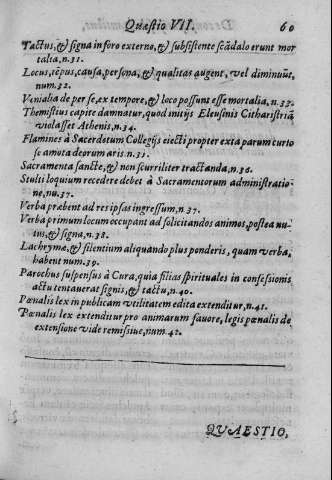 Quæstio VII. 60
Tactus, & signa in foro externo, & subsistente scãdalo erunt mor
talia, n.31.
Locus, tẽpus, causa, persona, & qualitas augent, vel diminuũt,
num.32.
Venialia de per se, ex tempore, & loco possunt esse mortalia, n.33.
Themistius capite damnatur, quod initijs Eleusinis Citharistriã
violasset Athenis, n.34.
Flamines à Sacerdotum Collegijs eiecti propter exta parum curio
se amota deorum aris n.35.
Sacramenta sanctè, & non scurriliter tractanda, n.36.
Stulti loquium recedere debet à Sacramentorum administratio-
ne, nu.37.
Verba præbent ad res ipsas ingressum, n.37.
Verba primum locum occupant ad solicitandos animos, postea nu-
tus, & signa, n.38.
Lachrymæ, & silentium aliquando plus ponderis, quam verba,
habent num.39.
Parochus suspensus à Cura, quia filias spirituales in confessionis
actu tentauerat signis, & tactu, n.40.
Pœnalis lex in publicam vtilitatem edita extenditur, n.41.
Pœnalis lex extenditur pro animarum fauore, legis pœnalis de
extensione vide remissiue, num.42.
QVAESTIO,